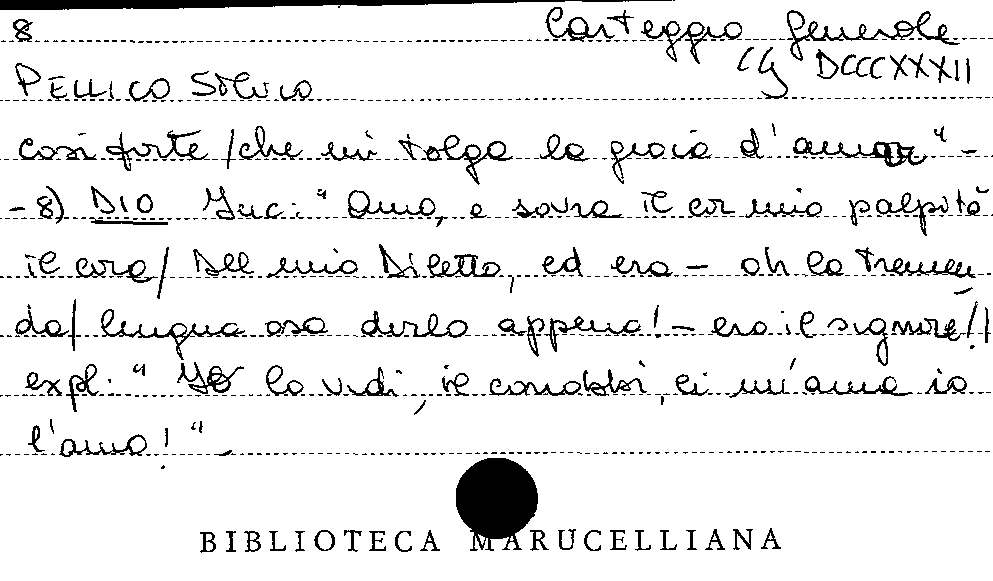 8 Carteggio Generale
PELLICO SILVIO Cg DCCCXXXII
così forte / che mi tolga la gioia d'amar" -
- 8) DIO Inc: "Amo, e sovra il cor mio palpitò
il core / Del mio Diletto, ed era - oh la tremen
da / lingua osa dirlo appena! - era il signore!/
expl: " Io lo vidi, il conobbi, ei m'ama io
l'amo! "-
BIBLIOTECA MARUCELLIANA